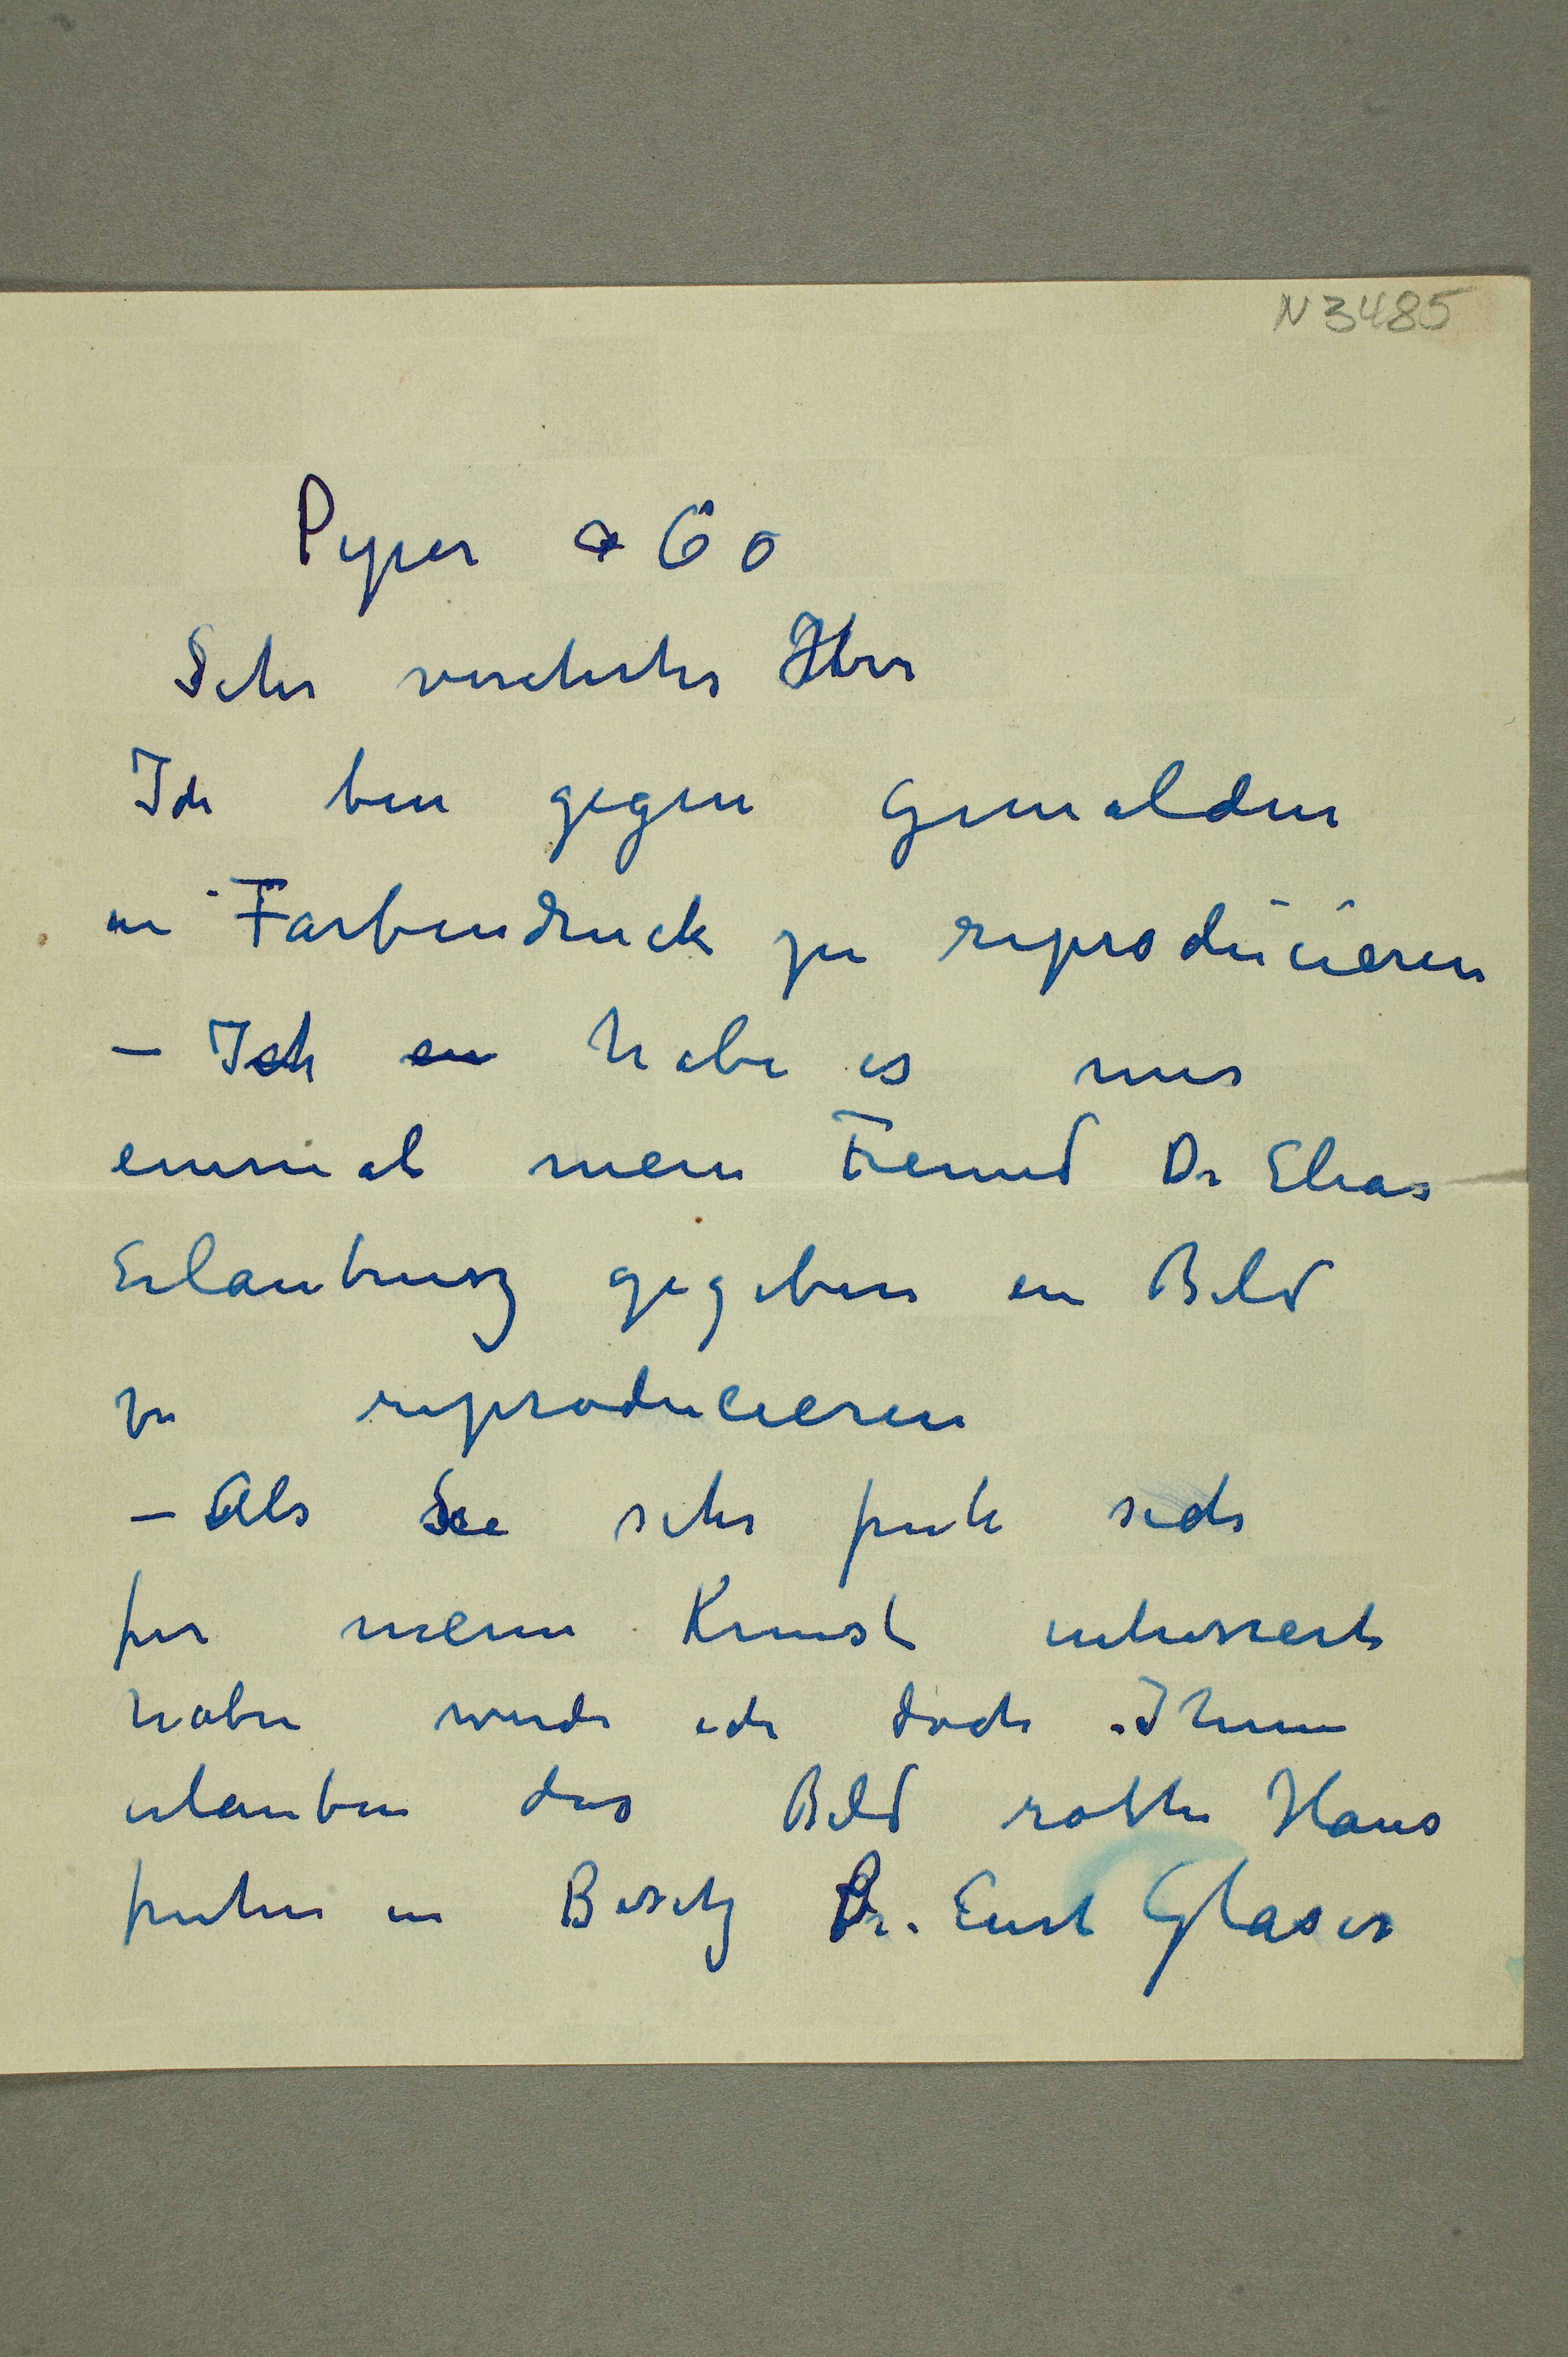 N 3485
Pyper & Co
Sehr verehrter Herr
Ich bin gegen Gemälden
in Farbendruck zu reproducieren
– Ich en habe es nur
einmal mein Freund Dr Elias
Erlaubnisz gegeben ein Bild
zu reproducieren
– Als Sie sehr fruh sich
fur meine Kunst interssiert
haben wurde ich doch Ihnen
erlauben das Bild rothe Haus
fruher im Besitz Dr. Curt Glaser